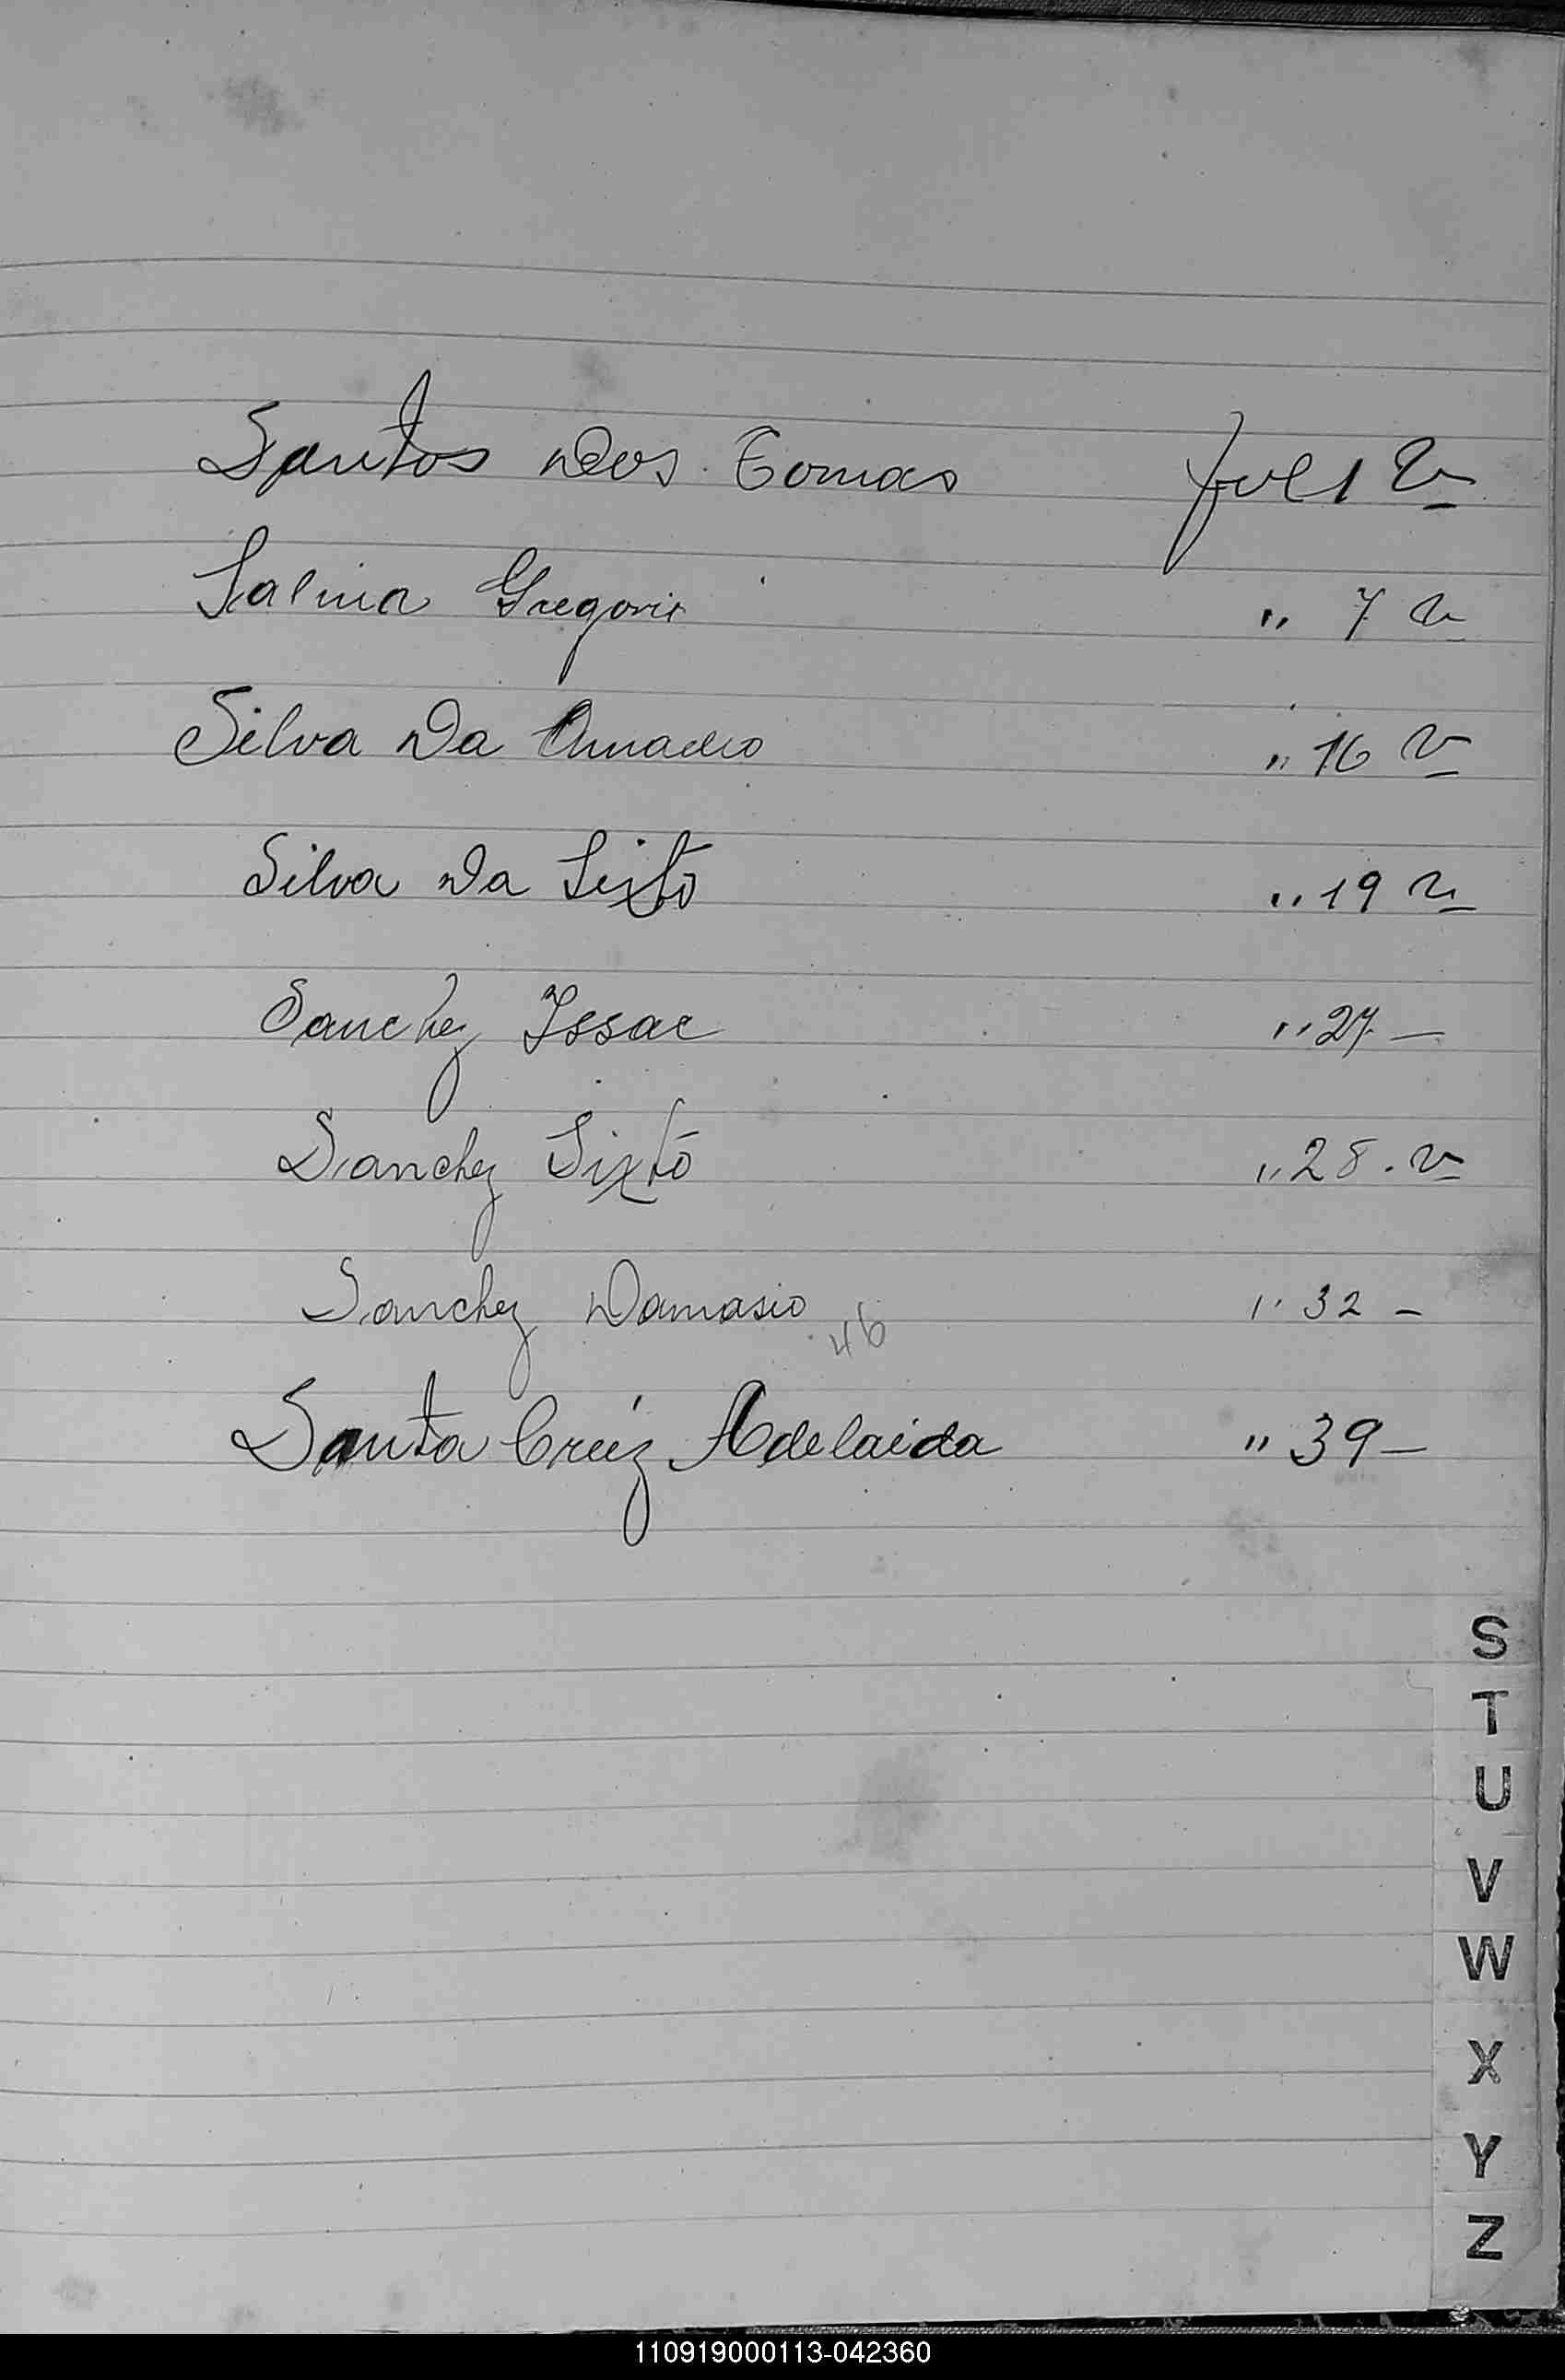 Santos Dos Tomas fol 1 v
Salina Gregorio " 7 v
Silva Da Amadeo " 16 v
Silva Da Sixto " 19 v
Sanchez Issac " 27 —
Sanchez Sixto " 28 . v
Sanchez Damasio " 32 —
46
Santa Cruz Adelaida " 39 —
S
T
U
V
W
X
Y
Z
110919000113-042360